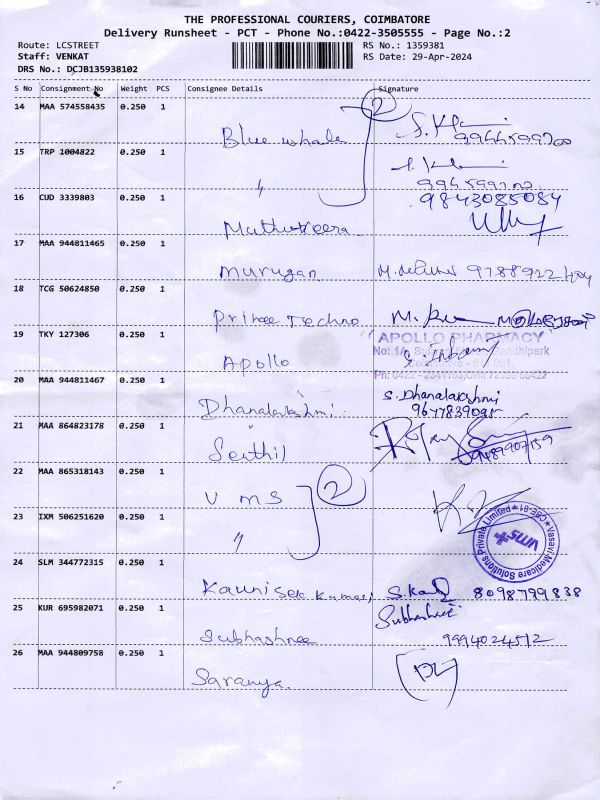 THE PROFESSIONAL COURIERS, COIMBATORE
Delivery Runsheet - PCT - Phone No.:0422-3505555 - Page No.:2
Route: LCSTREET
RS No.: 1359381
Staff: VENKAT
RS Date: 29-Apr-2024
DRS No.: DCJB135938102
S No Consignment No Weight PCS Consignee Details Signature
14 MAA 574558435 0.250 1
Blue whale 2
15 TRP 1004822 0.250 1
"
16 CUD 3339803 0.250 1 9843085084
Muthuveera
17 MAA 944811465 0.250 1
Murugan
18 TCG 50624850 0.250 1
Prince Techno
19 TKY 127306 0.250 1
"APOLLO PHARMACY"
Apollo
20 MAA 944811467 0.250 1
Dhanalakshmi S. Dhanalakshmi
9677839095
21 MAA 864823178 0.250 1
"
Senthil
22 MAA 865318143 0.250 1
VMS 2
23 IXM 506251620 0.250 1
"
Vasavi Medicare Solutions Private Limited * CBE-01 *
vms+
24 SLM 344772315 0.250 1
8098799838
25 KUR 695982071 0.250 1 Subhashree
Subhashree 9994024512
26 MAA 944809758 0.250 1
Saranya.